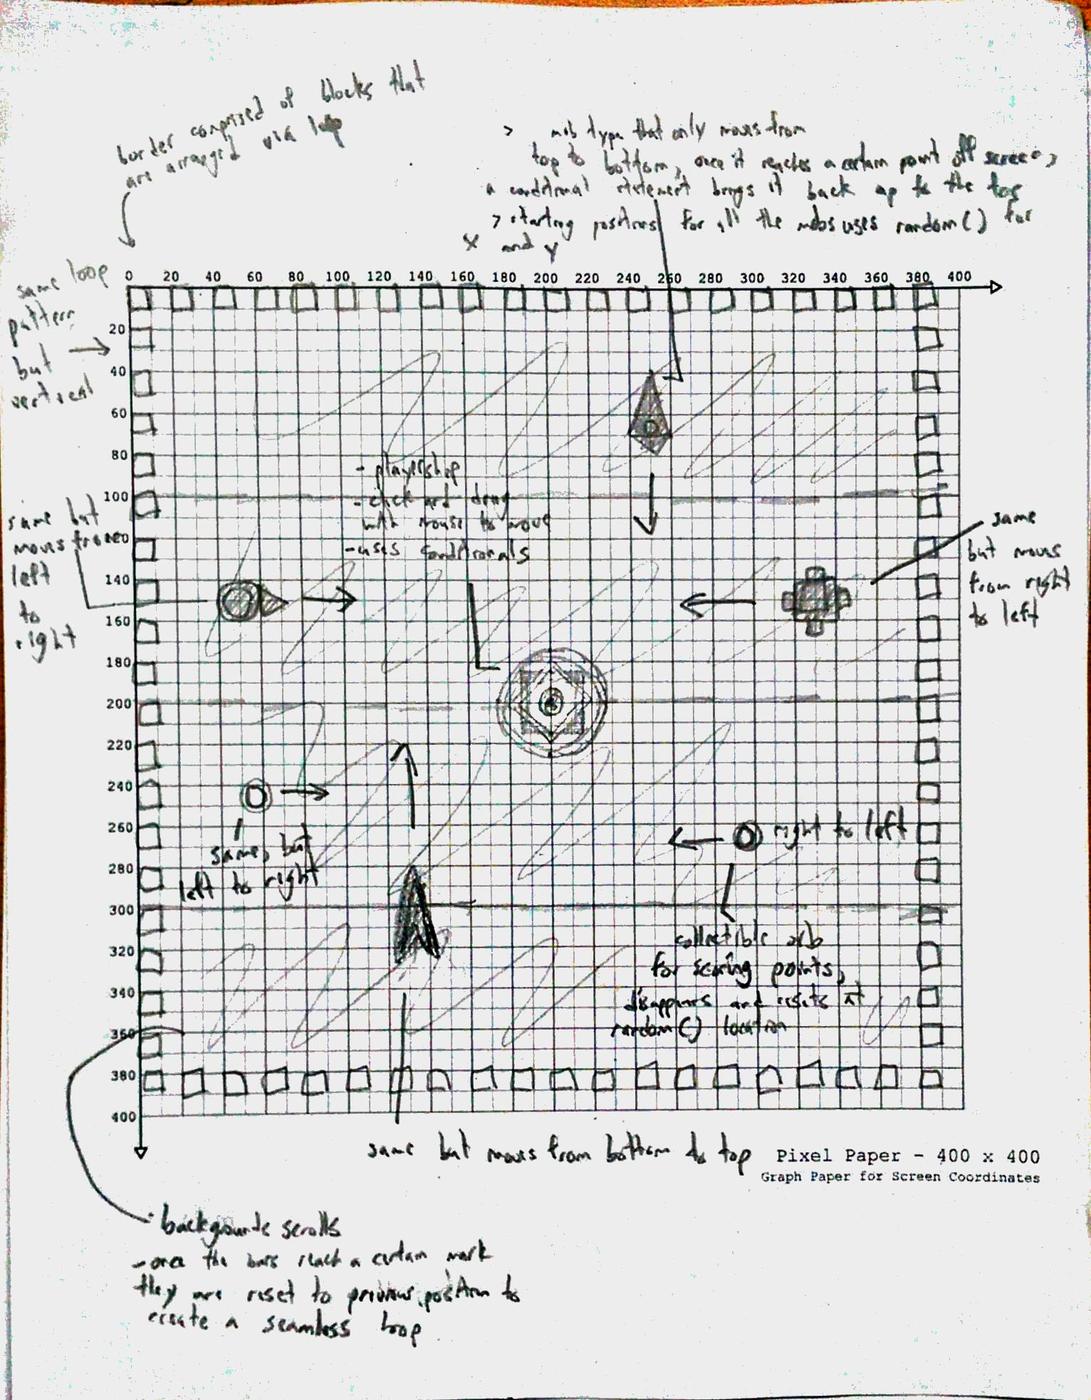 border comprised of blocks that
are arranged via loop
> mob type that only moves from
top to bottom, once it reaches a certain point off screen,
a conditional statement brings it back up to the top
> starting positions for all the mobs uses random() for
x and y
same loop
pattern
but
vertical
0 20 40 60 80 100 120 140 160 180 200 220 240 260 280 300 320 340 360 380 400
20
40
60
80
100
120
140
160
180
200
220
240
260
280
300
320
340
360
380
400
- playership
- click and drag
with mouse to move
- uses conditionals
same but
moves from
left
to
right
same
but moves
from right
to left
same, but
left to right
right to left
collectible orb
for scoring points,
disappears and resets at
random() location
same but moves from bottom to top
Pixel Paper - 400 x 400
Graph Paper for Screen Coordinates
backgrounds scrolls
- once the bars reach a certain mark
they are reset to previous position to
create a seamless loop